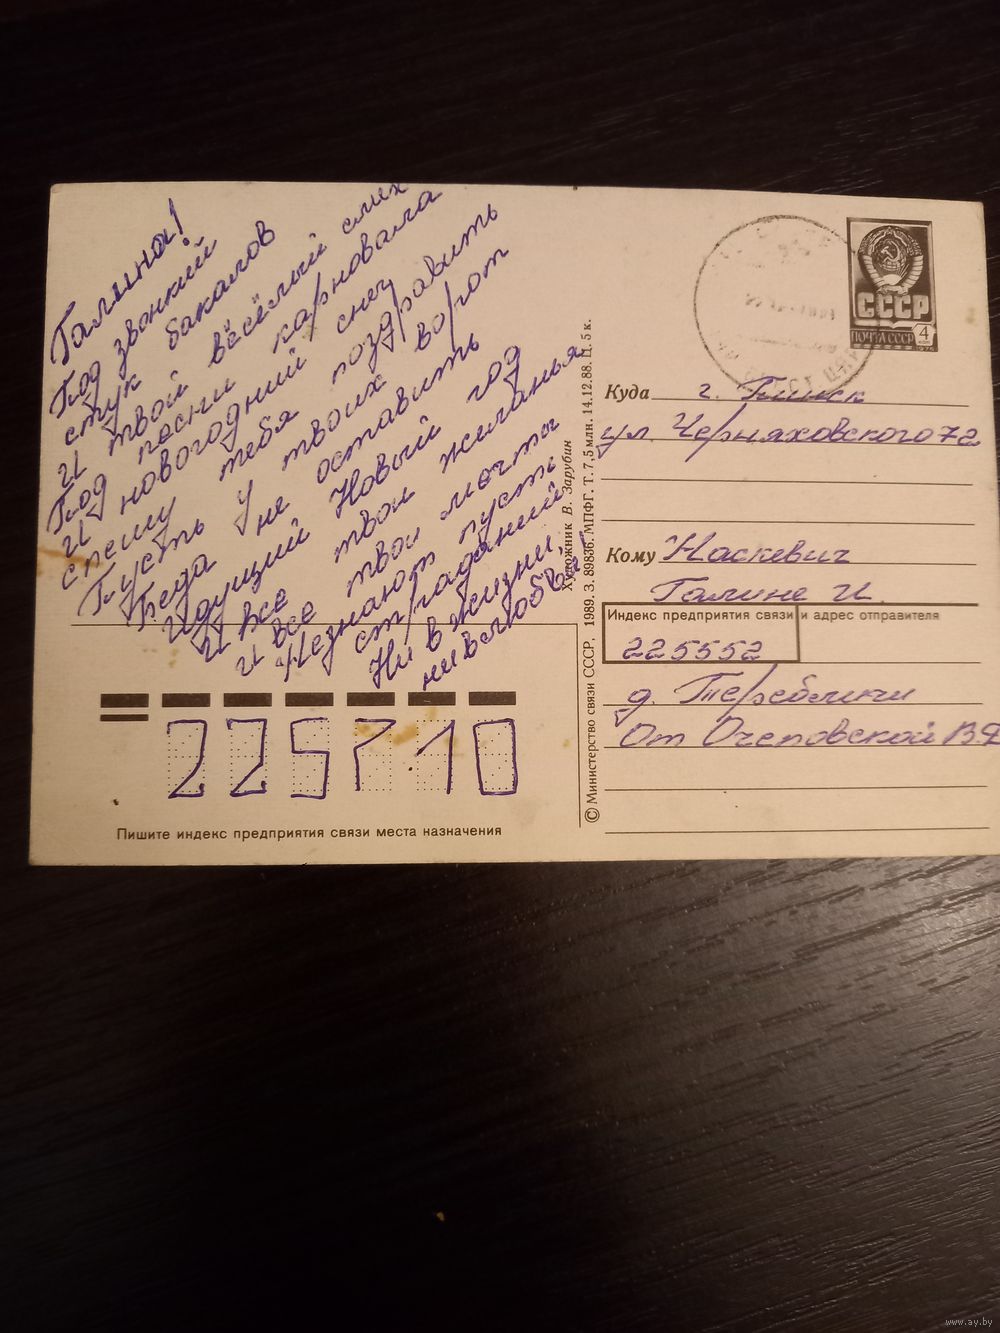 Галина!
Под звонкий
стук бакалов
И твой весёлый смех
Под песни карновала
И новогодний снег
спешу тебя поздравить
Пусть у твоих ворот
Беда не оставить
Идущий Новый год
И все твои желанья
и все твои мечты
Незнают пусть
страданий
Ни в жизни,
ни в любви!
СССР
ПОЧТА СССР
4
КОП
1976
Куда г. Пинск
ул. Черняховского 72
Кому Наскевич
Галине И.
Индекс предприятия связи и адрес отправителя
225552
д. Теребличи
От Очеповской В.Ф
225710
Пишите индекс предприятия связи места назначения
© Министерство связи СССР. 1989. З. 89836. МПФГ. Т. 7,5 млн. 14.12.88. Ц. 5 к.
Художник В. Зарубин
www.ay.by